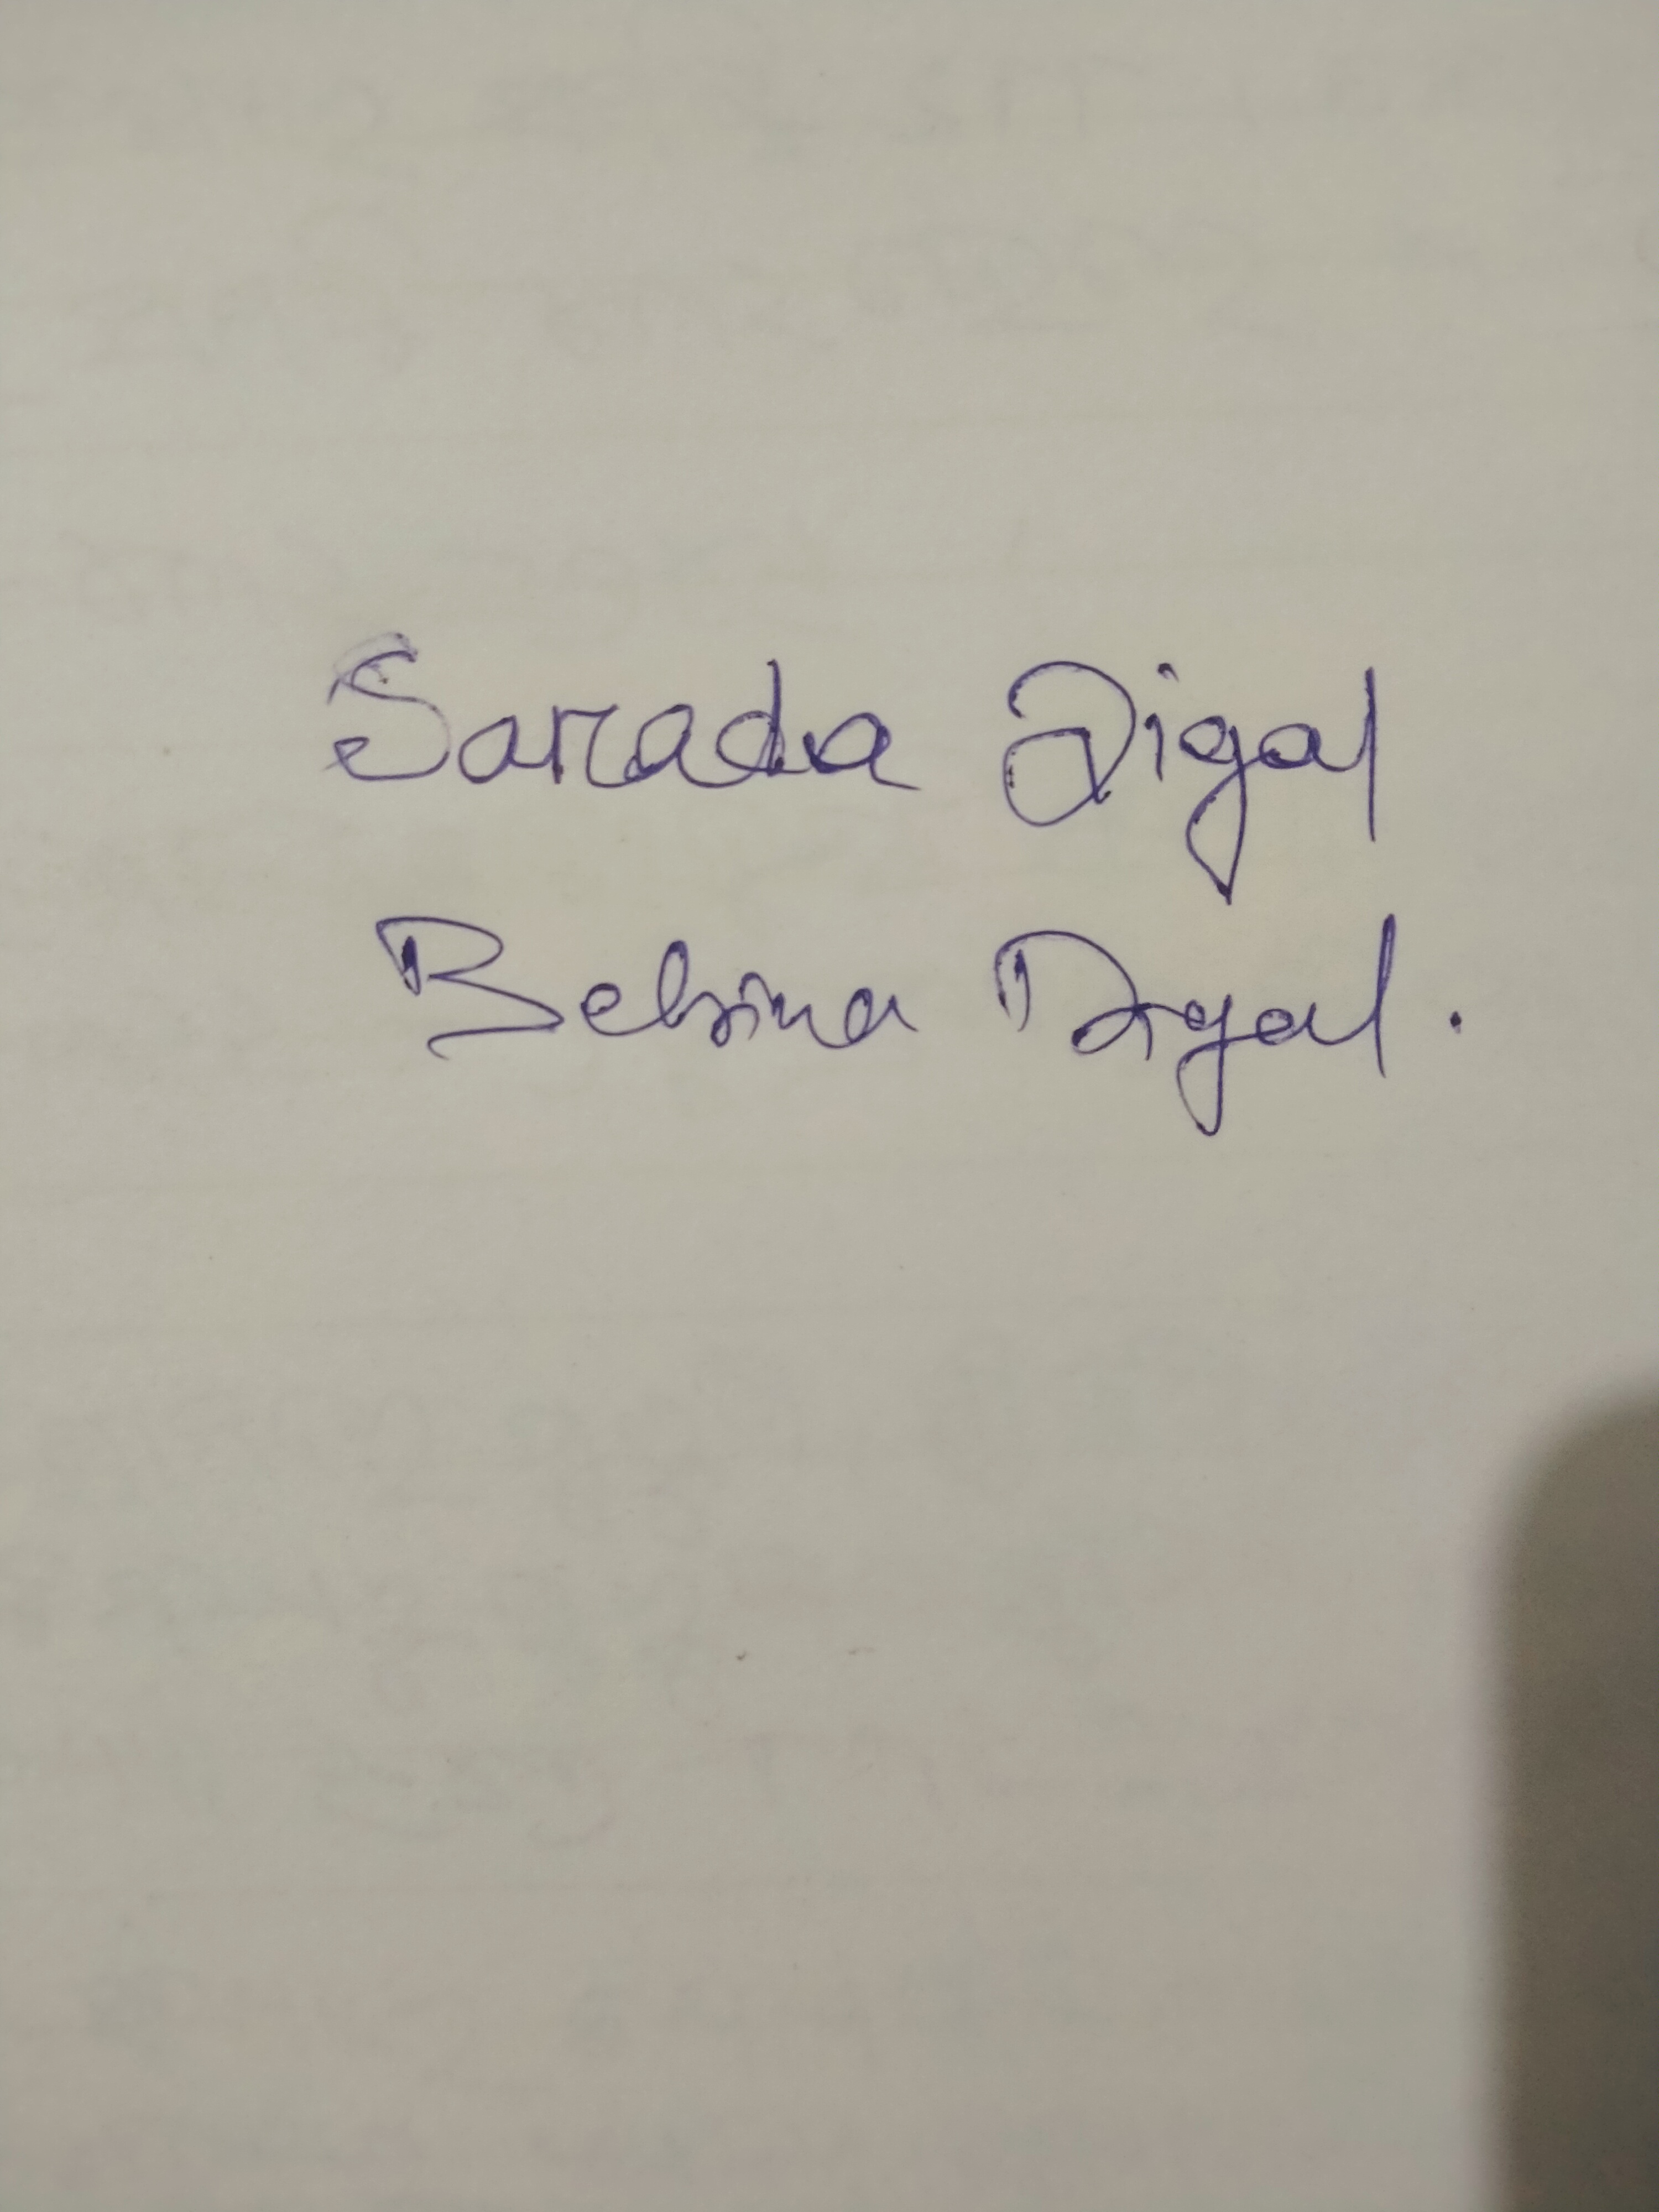 Sarada Digal
Belsina Digal.